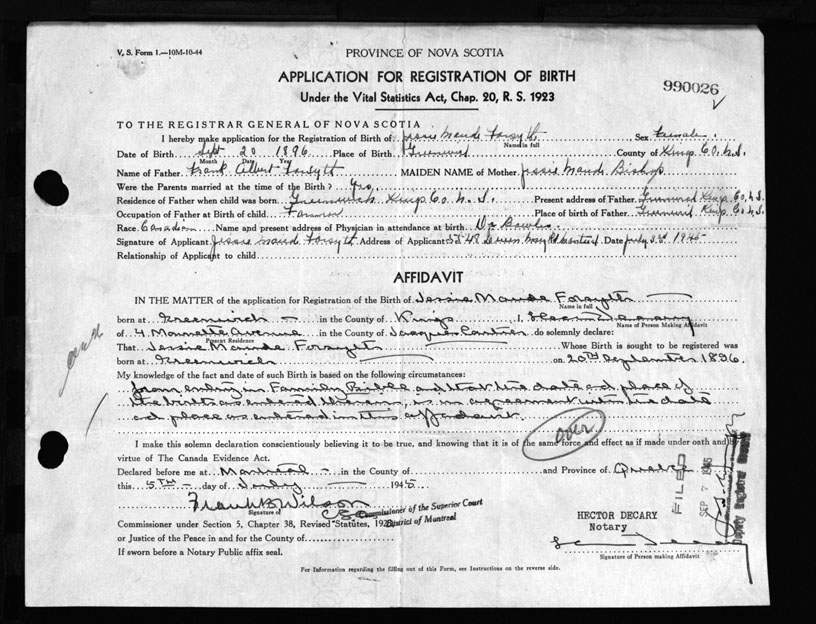 V. S. Form 1.—10M-10-44
PROVINCE OF NOVA SCOTIA
APPLICATION FOR REGISTRATION OF BIRTH
Under the Vital Statistics Act, Chap. 20, R. S. 1923
990026
TO THE REGISTRAR GENERAL OF NOVA SCOTIA
I hereby make application for the Registration of Birth of Jessie Maude Forsyth, Sex Female.
Name in full
Date of Birth Sept 20 1896 Place of Birth Greenwich County of Kings Co. N.S.
Month Day Year
Name of Father Frank Albert Forsyth MAIDEN NAME of Mother Jessie Maude Bishop
Were the Parents married at the time of the Birth? Yes,
Residence of Father when child was born Greenwich Kings Co N.S. Present address of Father Greenwich Kings Co N.S.
Occupation of Father at Birth of child Farmer Place of birth of Father Greenwich Kings Co N.S.
Race Canadian Name and present address of Physician in attendance at birth Dr
Signature of Applicant Jessie Maud Forsyth Address of Applicant Date July 3rd 1945
Relationship of Applicant to child
AFFIDAVIT
IN THE MATTER of the application for Registration of the Birth of Jessie Maude Forsyth
Name in full
born at Greenwich in the County of Kings I,
Name of Person Making Affidavit
of 4 Avenue in the County of Jacques Cartier do solemnly declare:
Present Residence
That Jessie Maude Forsyth Whose Birth is sought to be registered was
born at Greenwich on 20th September 1896.
My knowledge of the fact and date of such Birth is based on the following circumstances:
from entry in Family Bible and that the date and place of
the birth as entered therein, is in agreement with the date
and place as entered in this affidavit.
over
I make this solemn declaration conscientiously believing it to be true, and knowing that it is of the same force and effect as if made under oath and by
virtue of The Canada Evidence Act.
Declared before me at Montreal in the County of and Province of Quebec
this 5TH day of July 1945
Frank B Wilson
Signature of
C S C Commissioner of the Superior Court
District of Montreal
Commissioner under Section 5, Chapter 38, Revised Statutes, 1923
or Justice of the Peace in and for the County of
If sworn before a Notary Public affix seal.
HECTOR DECARY
Notary
Signature of Person making Affidavit
FILED
SEP 7 1945
Deputy Registrar General
For Information regarding the filling out of this Form, see Instructions on the reverse side.